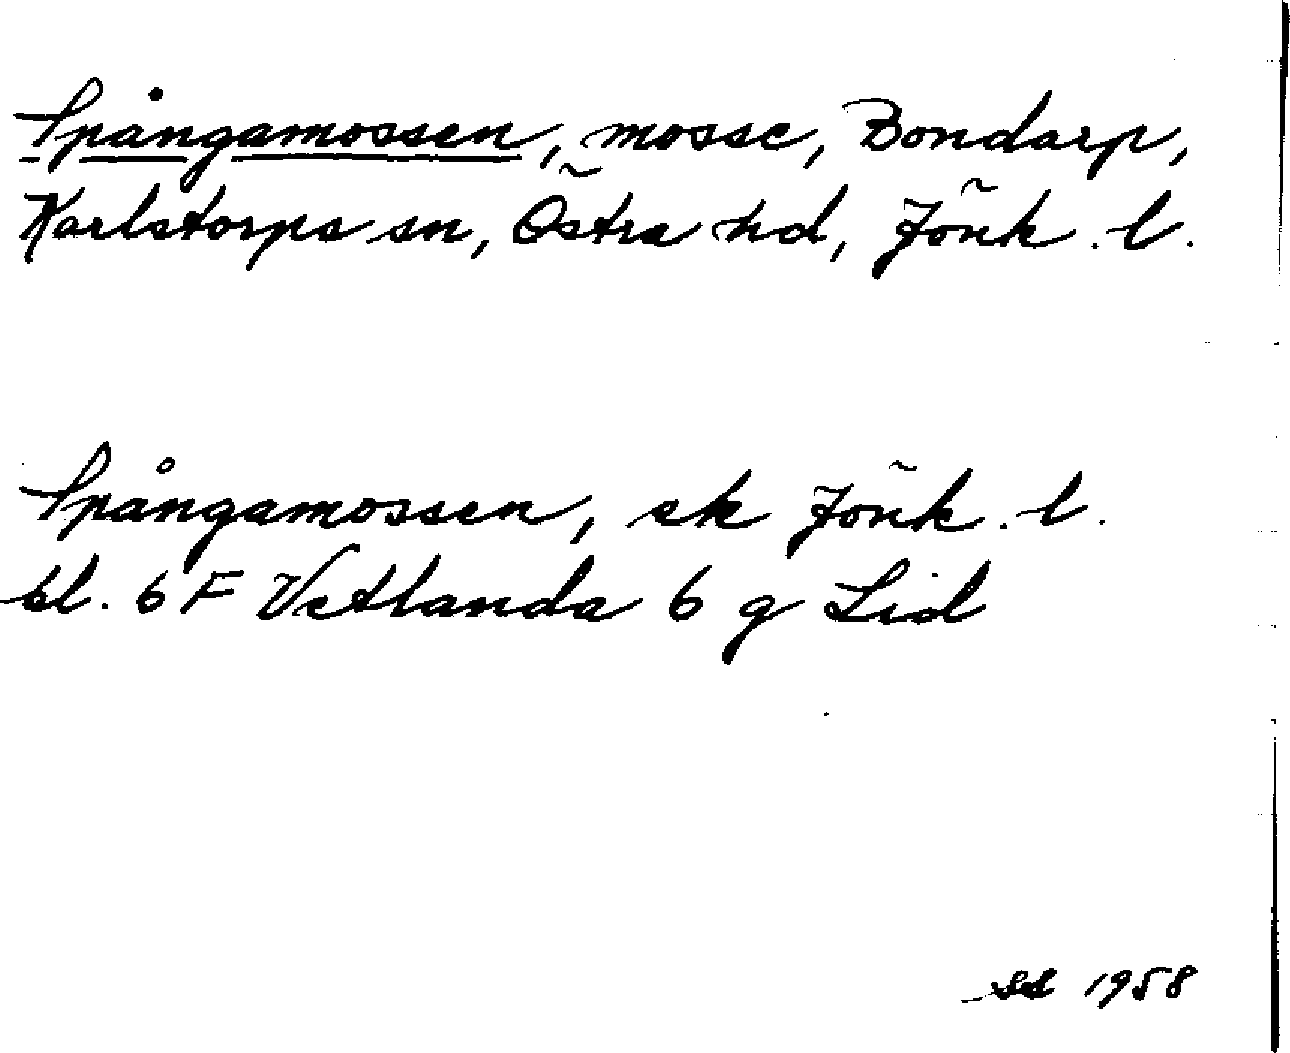 Spångamossen, mosse, Bondarp,
Karlstorps sn, Östra hd, Jönk. l.
Spångamossen, ek Jönk. l.
bl. 6 F Vetlanda 6 g Lid
1958